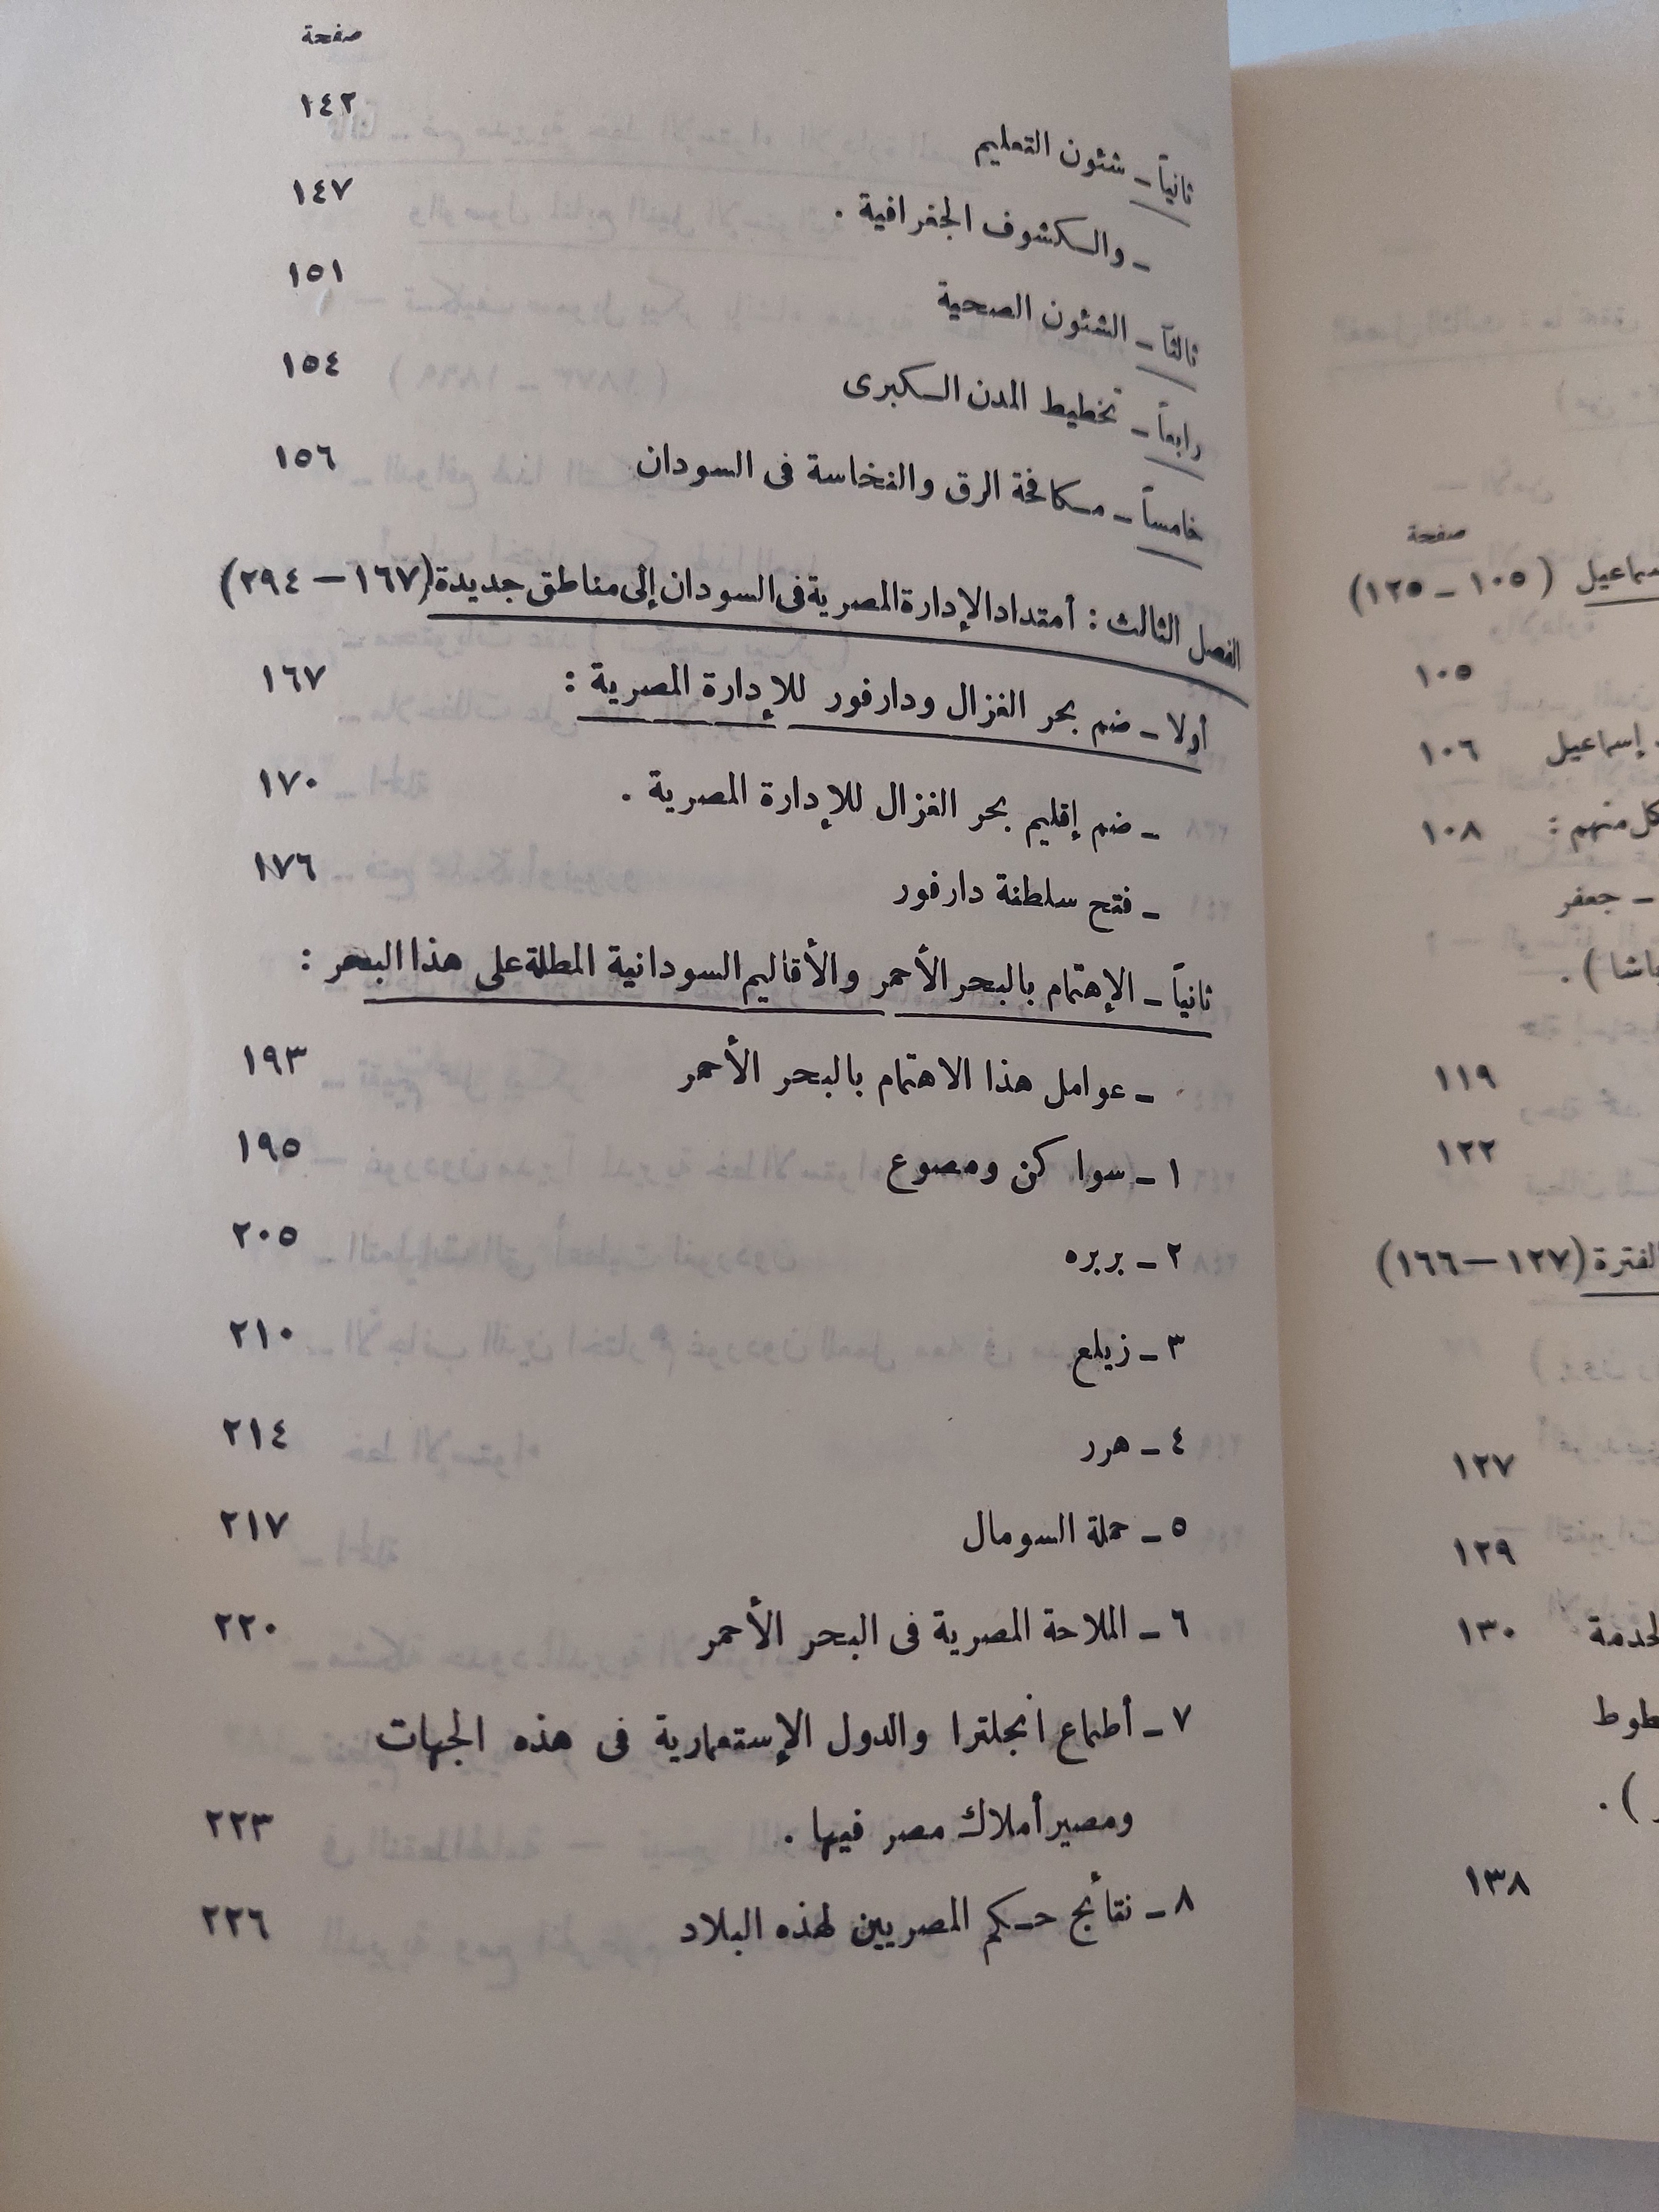 صفحة
ثانياً ـ شئون التعليم ١٤٢
ـ والكشوف الجغرافية . ١٤٧
ثالثاً ـ الشئون الصحية ١٥١
رابعاً ـ تخطيط المدن الكبرى ١٥٤
خامساً ـ مكافحة الرق والنخاسة فى السودان ١٥٦
الفصل الثالث : أمتداد الإدارة المصرية فى السودان إلى مناطق جديدة (١٦٧ – ٢٩٤)
أولا ـ ضم بحر الغزال ودارفور للإدارة المصرية : ١٦٧
ـ ضم إقليم بحر الغزال للإدارة المصرية . ١٧٠
ـ فتح سلطنة دارفور ١٧٦
ثانياً ـ الإهتمام بالبحر الأحمر والأقاليم السودانية المطلة على هذا البحر :
ـ عوامل هذا الاهتمام بالبحر الأحمر ١٩٣
١ ـ سواكن ومصوع ١٩٥
٢ ـ بربره ٢٠٥
٣ ـ زيلع ٢١٠
٤ ـ هرر ٢١٤
٥ ـ حملة السومال ٢١٧
٦ ـ الملاحة المصرية فى البحر الأحمر ٢٢٠
٧ ـ أطماع انجلترا والدول الإستعمارية فى هذه الجهات
ومصير أملاك مصر فيها . ٢٢٣
٨ ـ نتائج حكم المصريين لهذه البلاد ٢٢٦
صفحة
(١٠٥ ـ ١٢٥)
١٠٥
إسماعيل ١٠٦
كل منهم : ١٠٨
ـ جعفر
باشا ) .
١١٩
١٢٢
الفترة (١٢٧ – ١٦٦)
١٢٧
١٢٩
١٣٠
) .
١٣٨